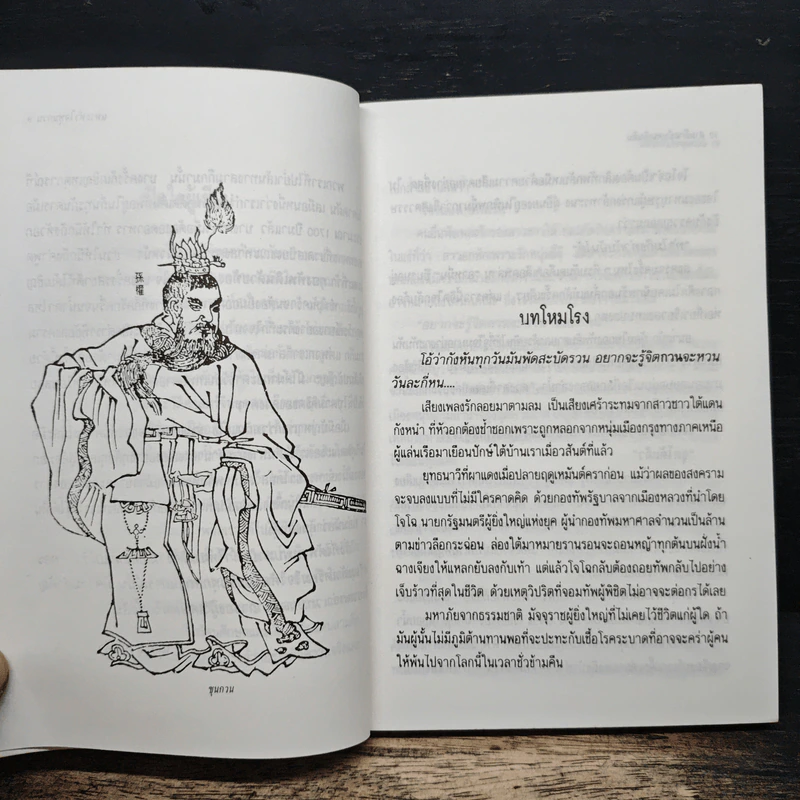 孫權
ซุนกวน
บทโหมโรง
โอ้ว่ากังหันทุกวันมันพัดสะบัดรวน อยากจะรู้จิตกวนจะหวน
วันละกี่หน....
เสียงเพลงรักลอยมาตามลม เป็นเสียงเศร้าระทมจากสาวชาวใต้แดน
กังหนำ ที่หัวอกต้องช้ำชอกเพราะถูกหลอกจากหนุ่มเมืองกรุงทางภาคเหนือ
ผู้แล่นเรือมาเยือนปักษ์ใต้บ้านเราเมื่อวสันต์ที่แล้ว
ยุทธนาวีที่ผาแดงเมื่อปลายฤดูเหมันต์คราก่อน แม้ว่าผลของสงคราม
จะจบลงแบบที่ไม่มีใครคาดคิด ด้วยกองทัพรัฐบาลจากเมืองหลวงที่นำโดย
โจโฉ นายกรัฐมนตรีผู้ยิ่งใหญ่แห่งยุค ผู้นำกองทัพมหาศาลจำนวนเป็นล้าน
ตามข่าวลือกระฉ่อน ล่องใต้มาหมายรานรอนจะถอนหญ้าทุกต้นบนฝั่งน้ำ
ฉางเจียงให้แหลกยับลงกับเท้า แต่แล้วโจโฉกลับต้องถอยทัพกลับไปอย่าง
เจ็บร้าวที่สุดในชีวิต ด้วยเหตุวิปริตที่จอมทัพผู้พิชิตไม่อาจจะต่อกรได้เลย
มหาภัยจากธรรมชาติ มัจจุราชผู้ยิ่งใหญ่ที่ไม่เคยไว้ชีวิตแก่ผู้ใด ถ้า
มันผู้นั้นไม่มีภูมิต้านทานพอที่จะปะทะกับเชื้อโรคระบาดที่อาจจะคร่าผู้คน
ให้พ้นไปจากโลกนี้ในเวลาชั่วข้ามคืน